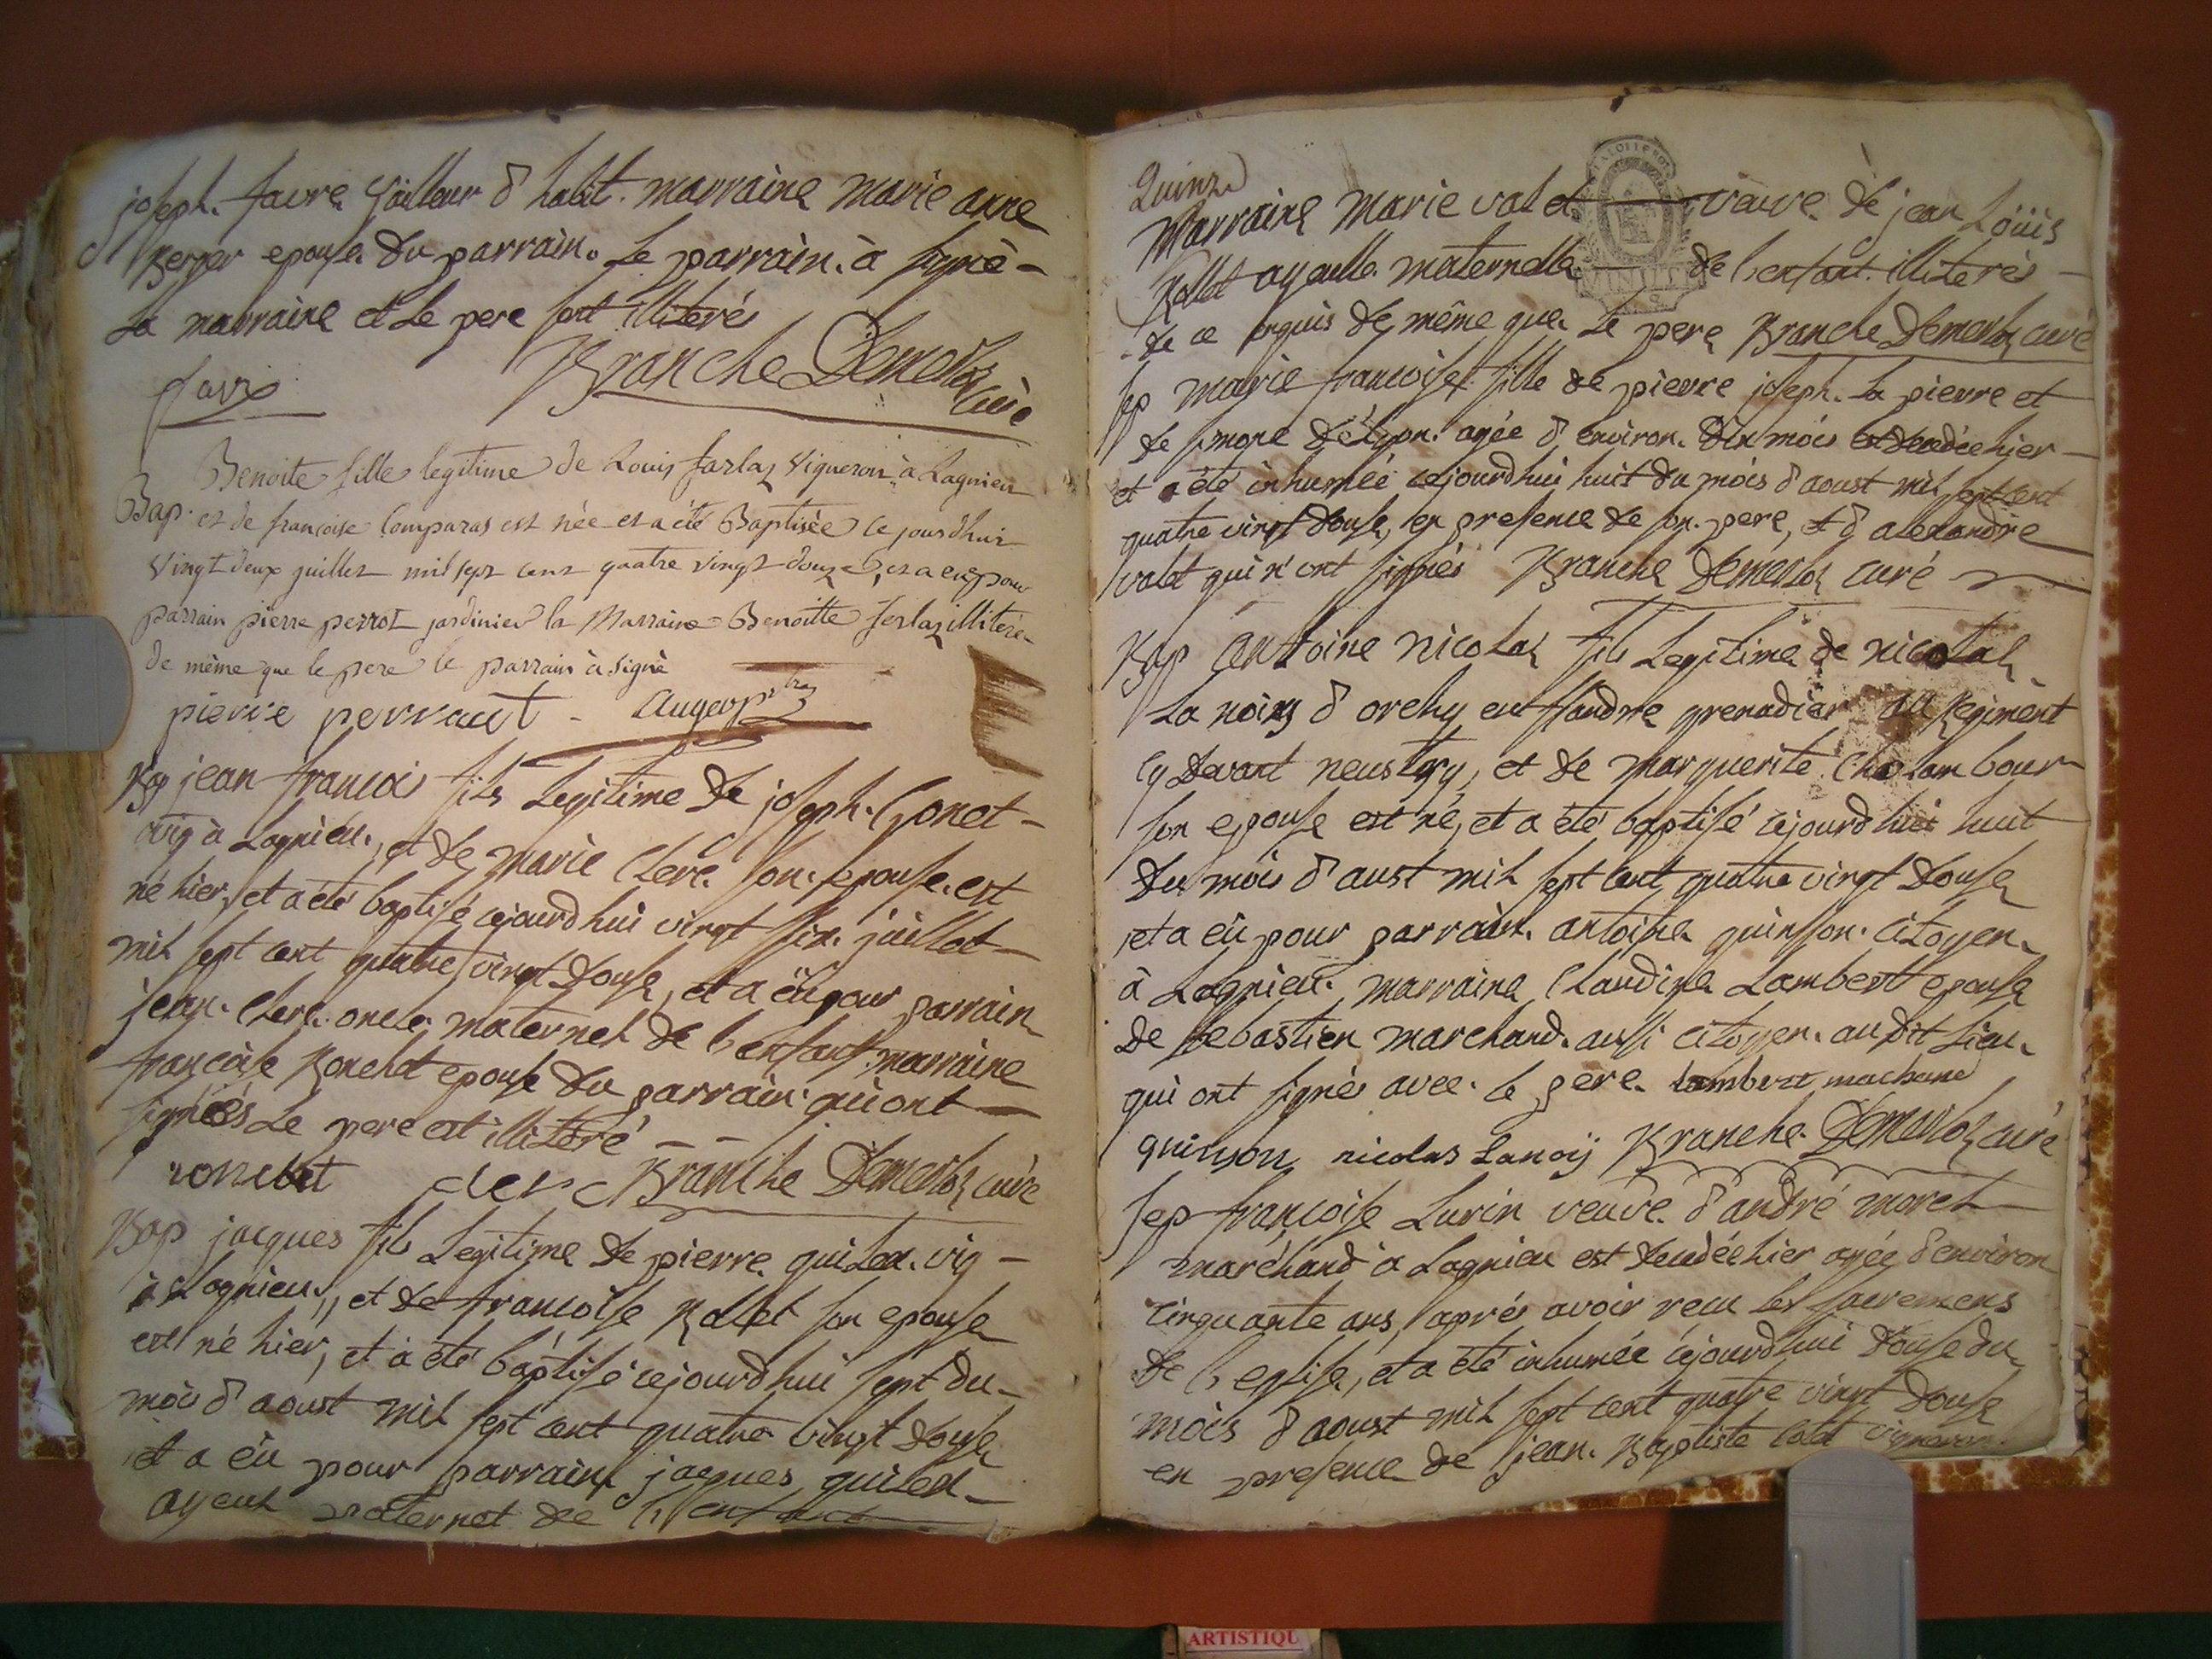 joseph. favre tailleur d'habit. marraine marie anne
Berger epouse du parrain. Le parrain. à signè -
La marraine et Le pere sont illiterés
favre
Branche Demerloz curé
Benoite fille legitime de Louis farlaz Vigneron à Lagnieu
Bap. et de francoise Comparas est née et a été Baptisée ce jourdhui
Vingt deux juillet mil sept cent quatre vingt douze, et a eu pour
parrain pierre perrot jardinier la Marraine Benoitte ferlaz illiterée
de même que le pere le parrain à signè
pierre perraut - Auger ptre
Bap jean francois fils Legitime de joseph. Gonet -
vig à Lagnieu., et de marie Clerc. son. epouse. est
né hier, et a été baptisé cejourdhui vingt six. juillet
mil sept cent quatre vingt douse, et a eü pour parrain
jean. Clerc. oncle. maternel de l'enfant. marraine
francoise Ronchet epouse du parrain. qui ont
signés Le pere est illitéré - -
ronchet clerc Branche Demerloz curé
Bap jacques fils Legitime de pierre quilet. vig -
à Lagnieu., et de francoise Rollet son epouse
est né hier, et a été baptisé cejourdhui sept du -
mois d'aoust mil sept cent quatre vingt douse
et a èü pour parrain jacques quilet -
ayeul paternel de l'enfant
Quinze
Marraine Marie valet veuve de jean Loüis
Rollet ayeulle. maternelle de l'enfant. illiterés -
de ce enquis de même que. Le pere Branche Demerloz curé
Sep marie francoise fille de pierre joseph. La pierre et
de simone de agée d'environ. dix mois est decedée hier -
et a été inhumée cejourdhui huit du mois d'aoust mil sept cent
quatre vingt douse, en presence de son. pere, et d'alexandre
valet qui n'ont signés Branche Demerloz curé
Bap Antoine Nicolas fils Legitime de nicolas
La noix d'orchy en flandre grenadier au Regiment
Cy devant neustry, et de Marguerite Chalambour
son epouse est né, et a été baptisé cejourdhui huit
du mois d'aust mil sept cent quatre vingt douse
et a eü pour parrain. antoine quinson. Citoyen.
à Lagnieu. marraine Claudine Lambert epouse
de sebastien marchand. aussi citoyen. au dit Lieu.
qui ont signés avec. le pere. lambert machand
quinson nicolas Lanoÿ Branche. Demerloz curé
Sep françoise Lurin veuve. d'andré morel
marchand à Lagnieu est decedée hier agée d'environ
cinquante ans, aprés avoir recu les sacremens
de l'eglise, et a été inhumée cejourdhui douse du
mois d'aoust mil sept cent quatre vingt douse
en presence de jean. Baptiste Colet vigneron.
ARTISTIQU